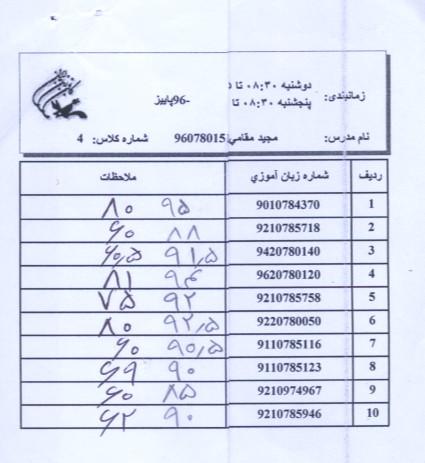 زمانبندی: دوشنبه ۰۸:۳۰ تا
پنجشنبه ۰۸:۳۰ تا -96پاییز
نام مدرس: مجید مقامی 96078015 شماره کلاس: 4
ردیف شماره زبان آموزي ملاحظات
1 9010784370 ۹۵ ۸۰
2 9210785718 ۸۸ ۶۰
3 9420780140 ۹۱٫۵ ۶۰٫۵
4 9620780120 ۹۴ ۸۱
5 9210785758 ۹۲ ۷۵
6 9220780050 ۹۲٫۵ ۸۰
7 9110785116 ۹۰٫۵ ۶۰
8 9110785123 ۹۰ ۶۹
9 9210974967 ۸۵ ۶۰
10 9210785946 ۹۰ ۶۲